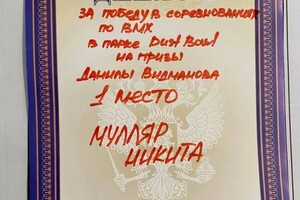 ЗА ПОБЕДУ В СОРЕВНОВАНИЯХ
ПО BMX
В ПАРКЕ Dust Bowl
НА ПРИЗЫ
ДАНИЛЫ ВИДМАНОВА
1 МЕСТО
МУЛЛЯР
НИКИТА